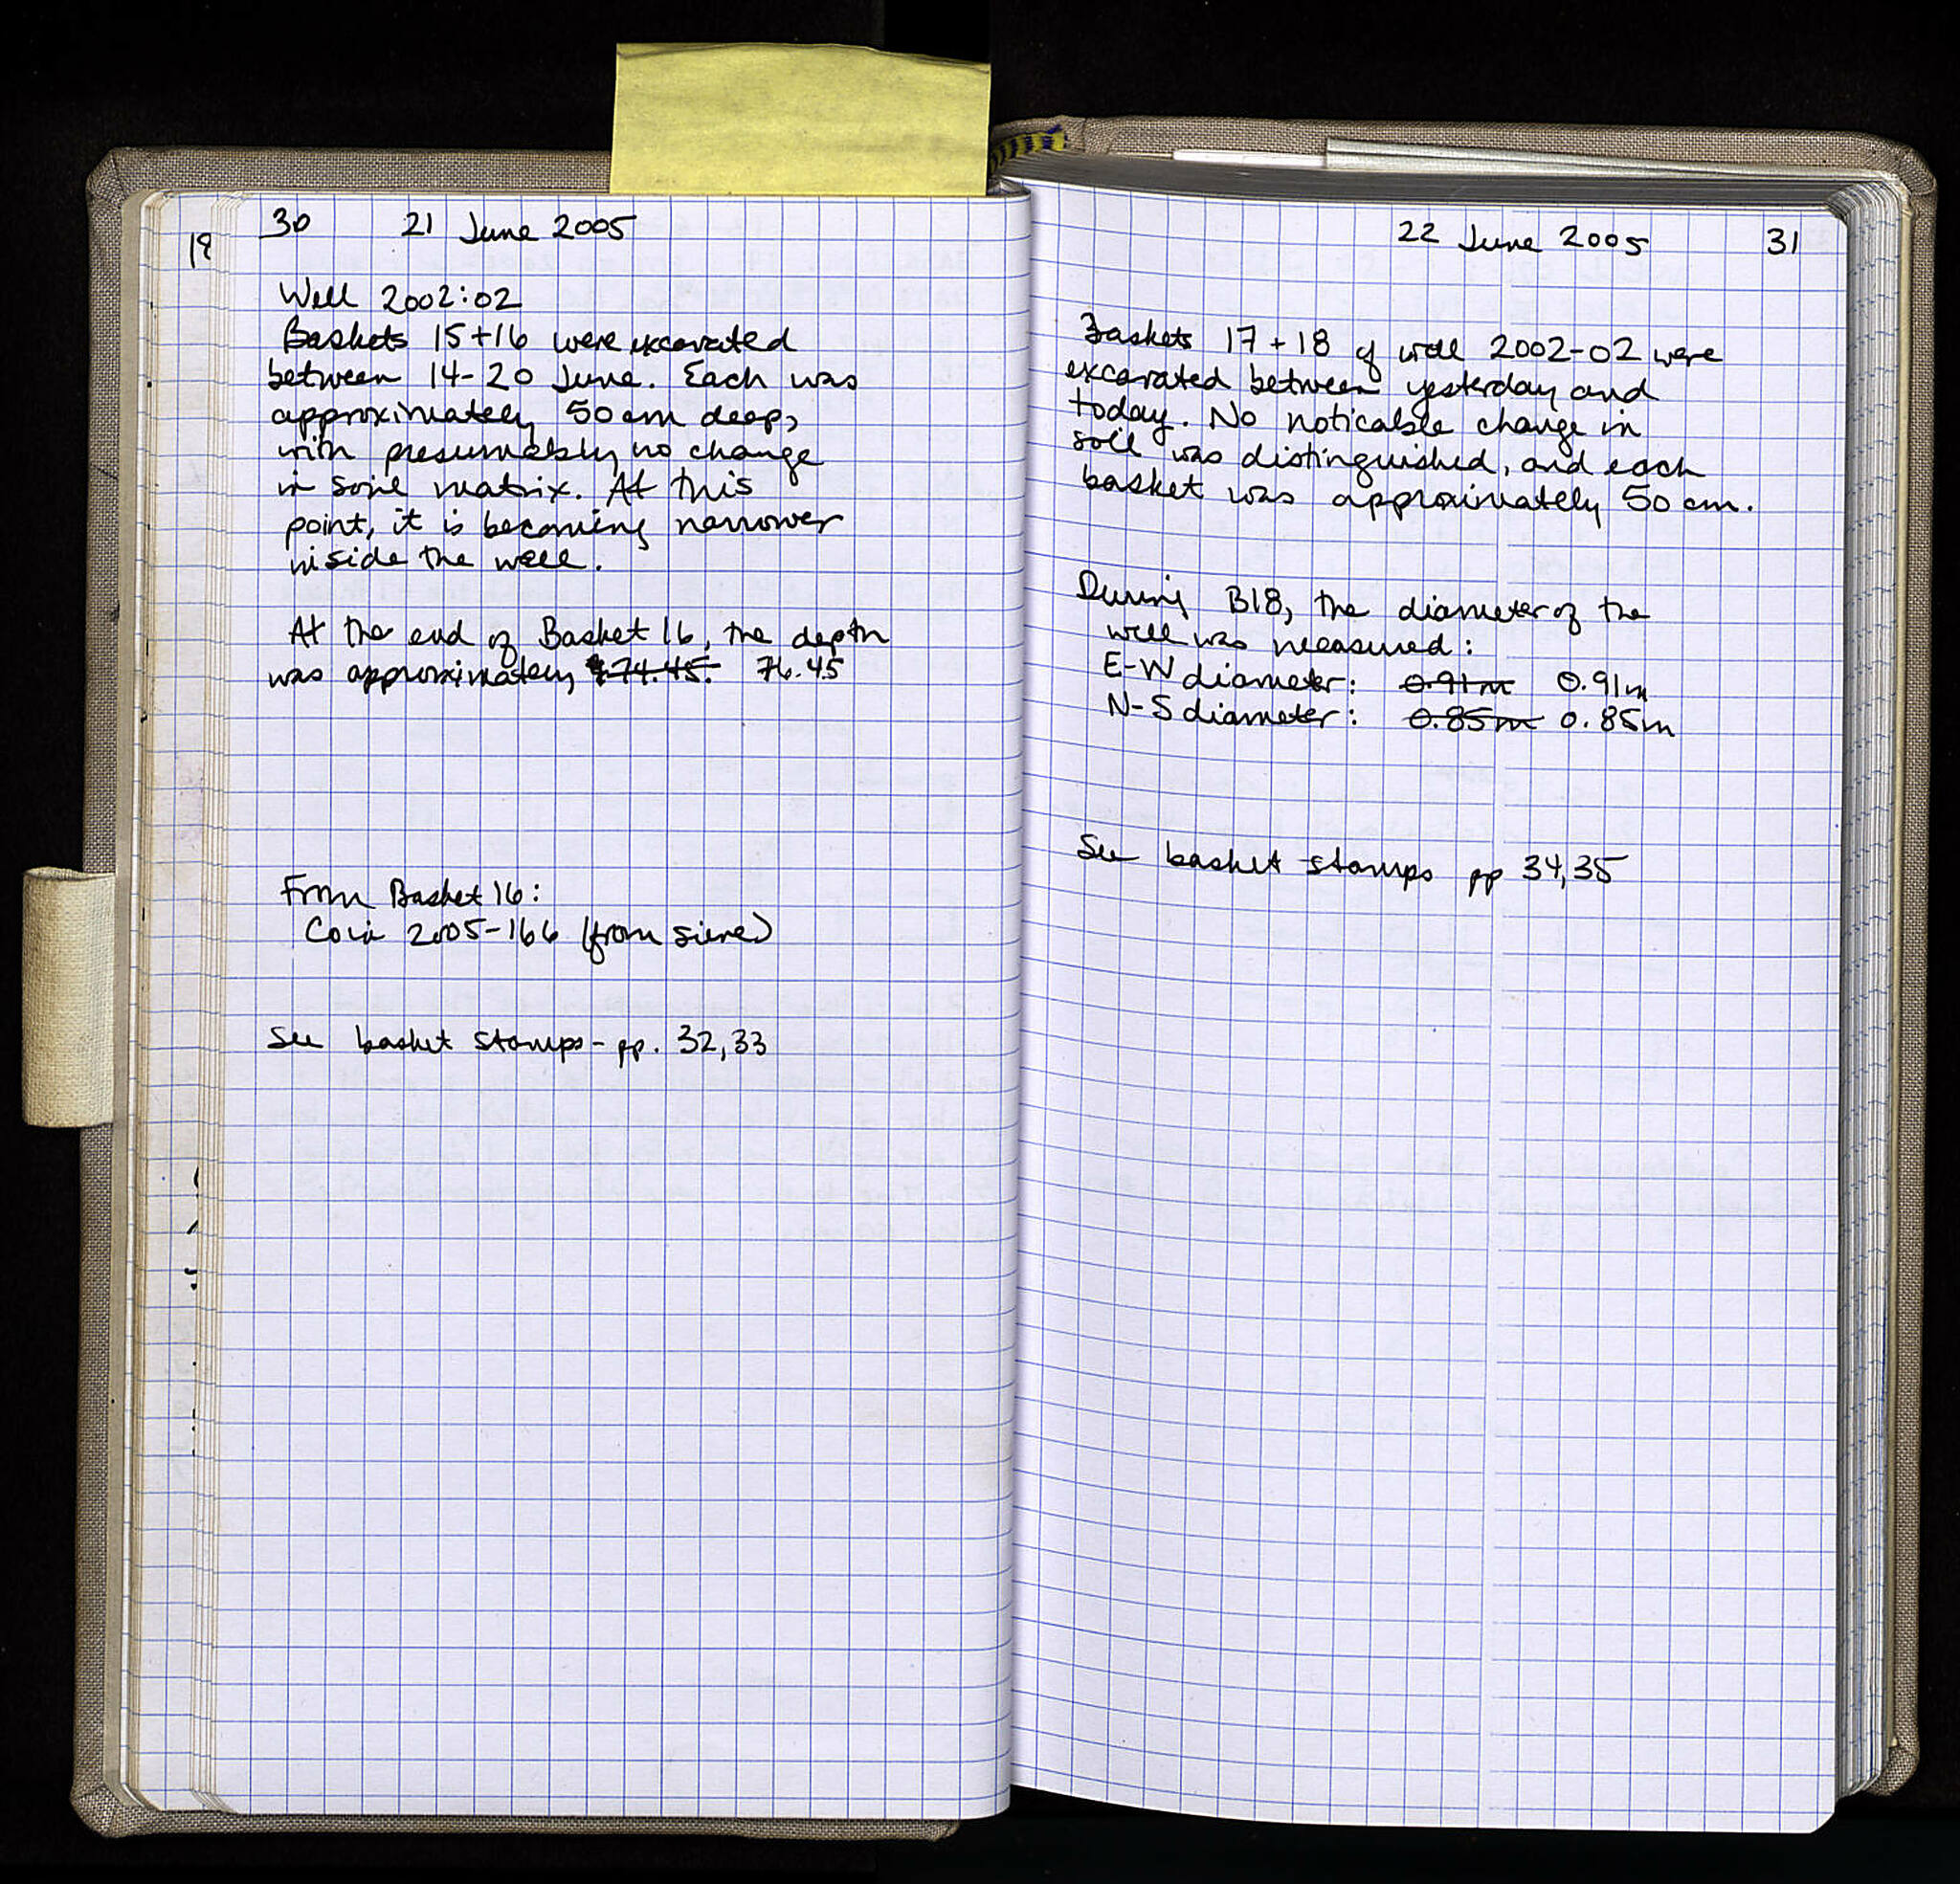 19
30 21 June 2005
Well 2002:02
Baskets 15+16 were excavated
between 14-20 June. Each was
approximately 50cm deep,
with presumably no change
in soil matrix. At this
point, it is becoming narrower
inside the well.
At the end of Basket 16, the depth
was approximately 74.45. 76.45
From Basket 16:
Coin 2005-166 (from sieve)
See basket stamps - pp. 32,33
22 June 2005 31
Baskets 17+18 of well 2002-02 were
excavated between yesterday and
today. No noticable change in
soil was distinguished, and each
basket was approximately 50 cm.
During B18, the diameter of the
well was measured:
E-W diameter: 0.91m 0.91m
N-S diameter: 0.85m 0.85m
See basket stamps pp 34,35